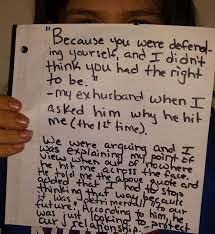 "Because you were defend-
ing yourself, and I didn't
think you had the right
to be."
-my exhusband when I
asked him why he hit
me (the 1st time).
We were arguing and I
was explaining my point of
view when out of nowhere
he hit me across the face.
He told me the above quote and
added that I had to stop
thinking that way because
it was detrimental to our
future. According to him, he
was just looking to protect
our relationship.